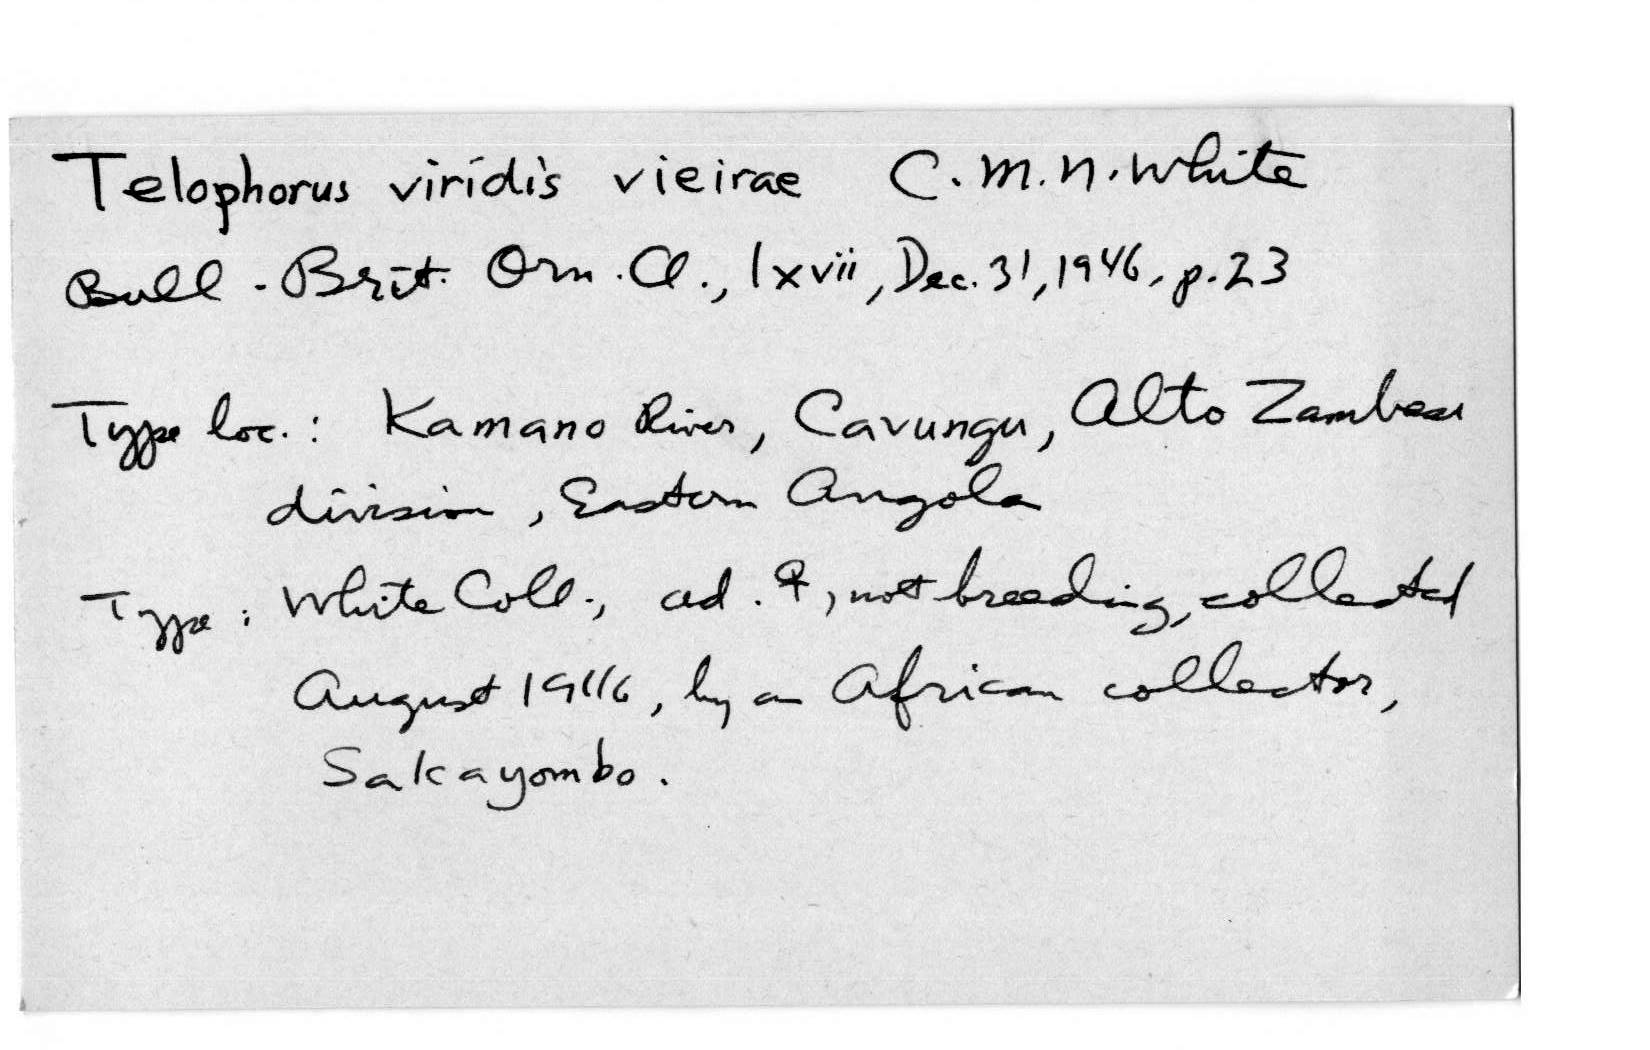 Telophorus viridis vieirae C.M.N. White
Bull. Brit. Orn. Cl., lxvii, Dec. 31, 1946, p. 23
Type loc.: Kamano River, Cavungu, Alto Zambesi
division, Eastern Angola
Type: White Coll., ad. ♀, not breeding, collected
August 1946, by an African collector,
Sakayombo.